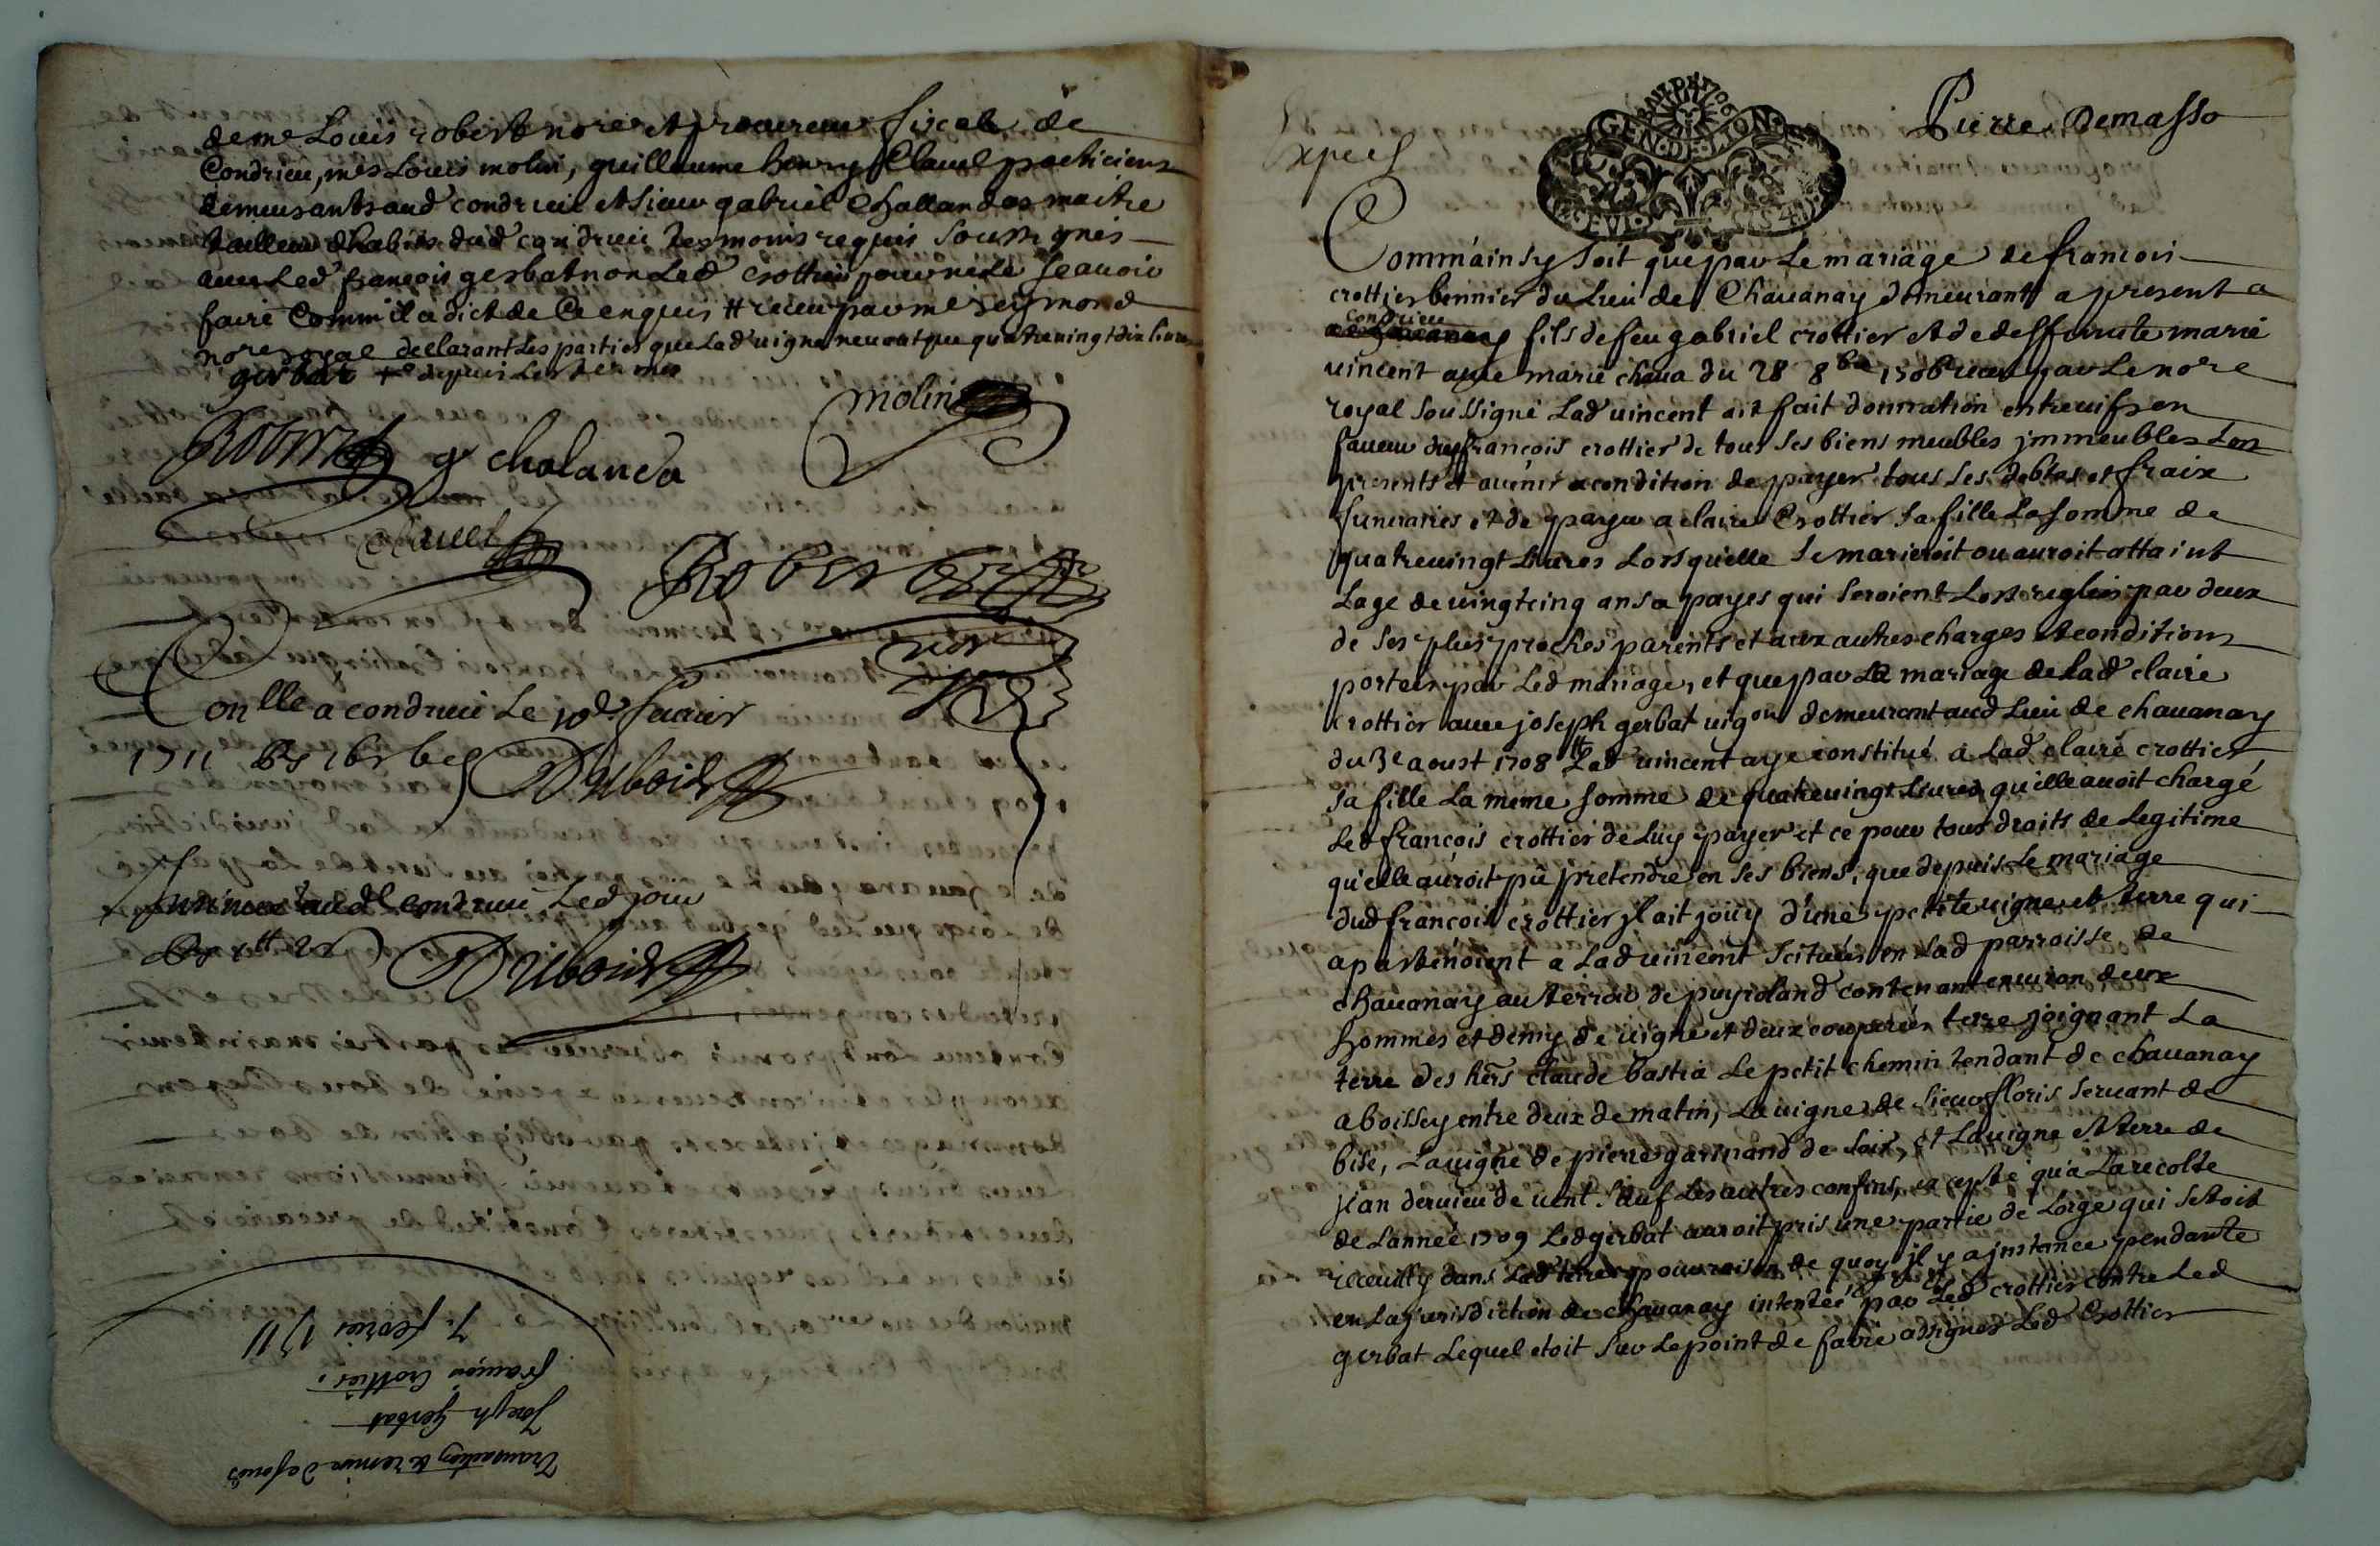 de me Louis robert nore et procureur fiscal de
Condrieu, mes Louis molin, guillaume henry Clauel praticiens
demeurants aud condrieu et sieur gabriel Challandas maitre
tailleur dhabits dud condrieu tesmoins requis soussignes
auec Led francois gerbat non Led crottier pour ne le scauoir
faire Comm il a dict de Ce enquis # receu par me reymond
nore royal declarant Les parties que Lad uigne ne uaut que quatreuingt dix liures
gerbat
molin
Robert g chalanda
clauel
Robert
nore
Conlle a condrieu Le 10e feurier
1711
Duboid
aud condrieu Led jour
Duboid
7e feurier 1711
françois Crottier
Joseph Gerbat
Transaction & remise de fonds
Expeé
GEN·DE·LYON
Pierre Demasso
Comm'ainsy soit que par Le mariage de francois
crottier bennier du Lieu de Chauanay demeurant a present a
Condrieu
fils de feu gabriel crottier et de deffuncte marie
uincent auec marie chaua du 28 8bre 1706 receu par Le nore
royal soussigné Lad uincent ait fait donnation entreuifs en
faueur dud françois crottier de tous ses biens meubles jmmeubles
presents et auenir a condition de payer tous ses debtes et fraix
funeraires et de payer a claire Crottier sa fille La somme de
quatreuingt Liures Lorsquelle se marieroit ou auroit attaint
Lage de uingtcinq ans a payes qui seroient Lors reglés par deux
de ses plus proches parents et aux autres charges et conditions
portées par Led mariage, et que par Le mariage de Lad claire
crottier auec joseph gerbat uigon demeurant aud Lieu de chauanay
du 3e aoust 1708 Lad uincent aye constitué a Lad claire crottier
sa fille La meme somme de quatreuingt Liures qu'elle auoit chargé
Led françois crottier de Luy payer et ce pour tous droits de Legitime
qu'elle auroit pû pretendre en ses biens, que depuis Le mariage
dud francois crottier jl ait joüy d'une petite uigne et terre qui
apartenoient a Lad uincent scitués en Lad parroisse de
chauanay au terroir de puyroland contenant enuiron deux
hommes et demy de uigne et deux couperées terre joignant La
terre des hers claude bastia Le petit chemin tendant de chauanay
a boissey entre deux de matin, La uigne de sieur floris seruant de
bise, La uigne de pierre garinand de soir, et La uigne et terre de
jean deruieu de uent sauf Les autres confins, excepté qu'a La recolte
de L'anneé 1709 Led gerbat auroit pris une partie de L'orge qui s'etoit
receuilly dans Lad terre pour raison de quoy il y a jnstance pendante
en La jurisdiction de chauanay intenteé par Led crottier contre Led
gerbat Lequel etoit sur Le point de faire assigner Led Crottier